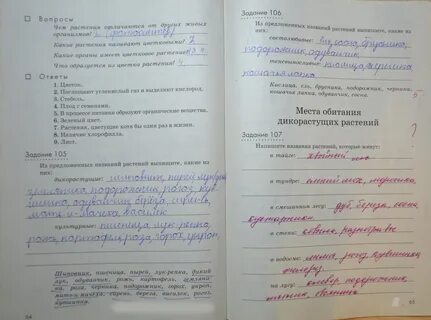 Вопросы
Чем растения отличаются от других живых
организмов? 2
Какие растения называют цветковыми? 7
Какие органы имеет цветковое растение?
Что образуется из цветка растения? 4
Ответы
1. Цветок.
2. Поглощают углекислый газ и выделяют кислород.
3. Стебель.
4. Плод с семенами.
5. В процессе питания образуют органические вещества.
6. Зеленый цвет.
7. Растения, цветущие хотя бы один раз в жизни.
8. Наличие хлорофилла.
9. Лист.
Задание 105
Из предложенных названий растений выпишите, какие из
них:
дикорастущие: шиповник, пырей, лук дикий
земляника, подорожник, рогоз, кув
шинка, одуванчик, берёза, сирень,
мать-и-мачеха, василёк
культурные: пшеница, лук-репка,
рожь, картофель, роза, горох, укроп.
Шиповник, пшеница, пырей, лук-репка, дикий
лук, одуванчик, рожь, картофель, земляни-
ка, роза, черника, подорожник, горох, укроп,
мать-и-мачеха, сирень, береза, василек, рогоз,
кувшинка.
64
Задание 106
Из предложенных названий растений выпишите, какие из
них:
светолюбивые: сосна, брусника,
подорожник, одуванчик
теневыносливые: кислица, черника
кошачья лапка
Кислица, ель, брусника, подорожник, черника,
кошачья лапка, одуванчик, сосна.
5
Места обитания
дикорастущих растений
Задание 107
Напишите названия растений, которые живут:
в тайге: хвойный лес
в тундре: мох, морошка
в смешанном лесу: дуб, берёза, сосна
кустарники
в степи:
в водоеме: рогоз, кувшинки
на лугу: клевер, подорожник
65